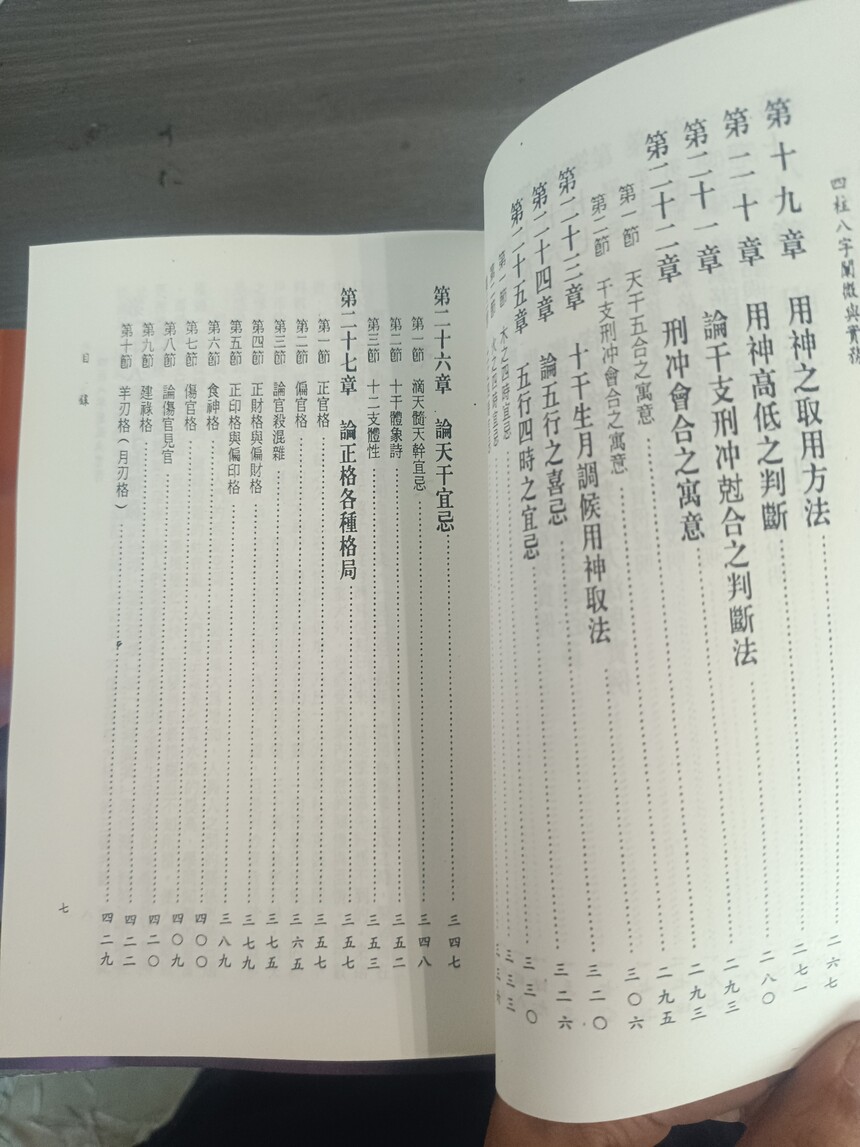 四柱八字闡微與實務
第十九章 用神之取用方法……二六七
第二十章 用神高低之判斷……二七一
第二十一章 論干支刑冲尅合之判斷法……二八〇
第二十二章 刑冲會合之寓意……二九三
第一節 天干五合之寓意……二九三
第二節 干支刑冲會合之寓意……二九五
第二十三章 十干生月調候用神取法……三〇六
第二十四章 論五行之喜忌……三二〇
第二十五章 五行四時之宜忌……三二六
第一節 木之四時宜忌……三三〇
第二節 火之四時宜忌……三三三
第二十六章 論天干宜忌……三四七
第一節 滴天髓天幹宜忌……三四八
第二節 十干體象詩……三五二
第三節 十二支體性……三五三
第二十七章 論正格各種格局……三五七
第一節 正官格……三五七
第二節 偏官格……三六五
第三節 論官殺混雜……三七五
第四節 正財格與偏財格……三七九
第五節 正印格與偏印格……三八九
第六節 食神格……四〇〇
第七節 傷官格……四〇九
第八節 論傷官見官……四二〇
第九節 建祿格……四二二
第十節 羊刃格（月刃格）……四二九
目錄
七